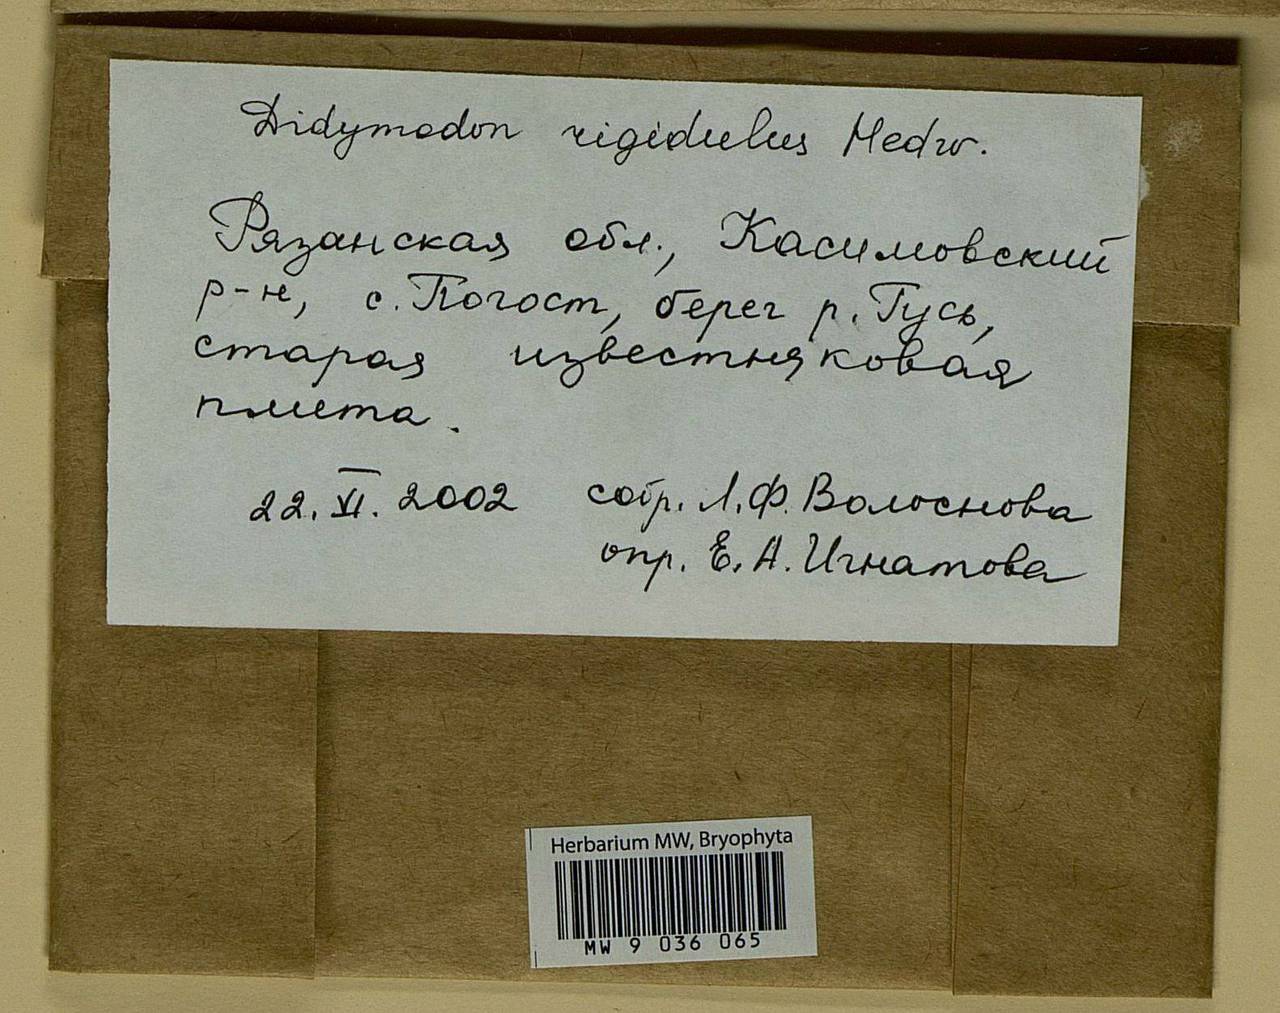 Didymodon rigidulus Hedw.
Рязанская обл., Касимовский
р-н, с. Погост, берег р. Гусь,
старая известняковая
плита.
22. VI. 2002 собр. Л.Ф. Волоснова
опр. Е. А. Игнатова
Herbarium MW, Bryophyta
MW 9 036 065